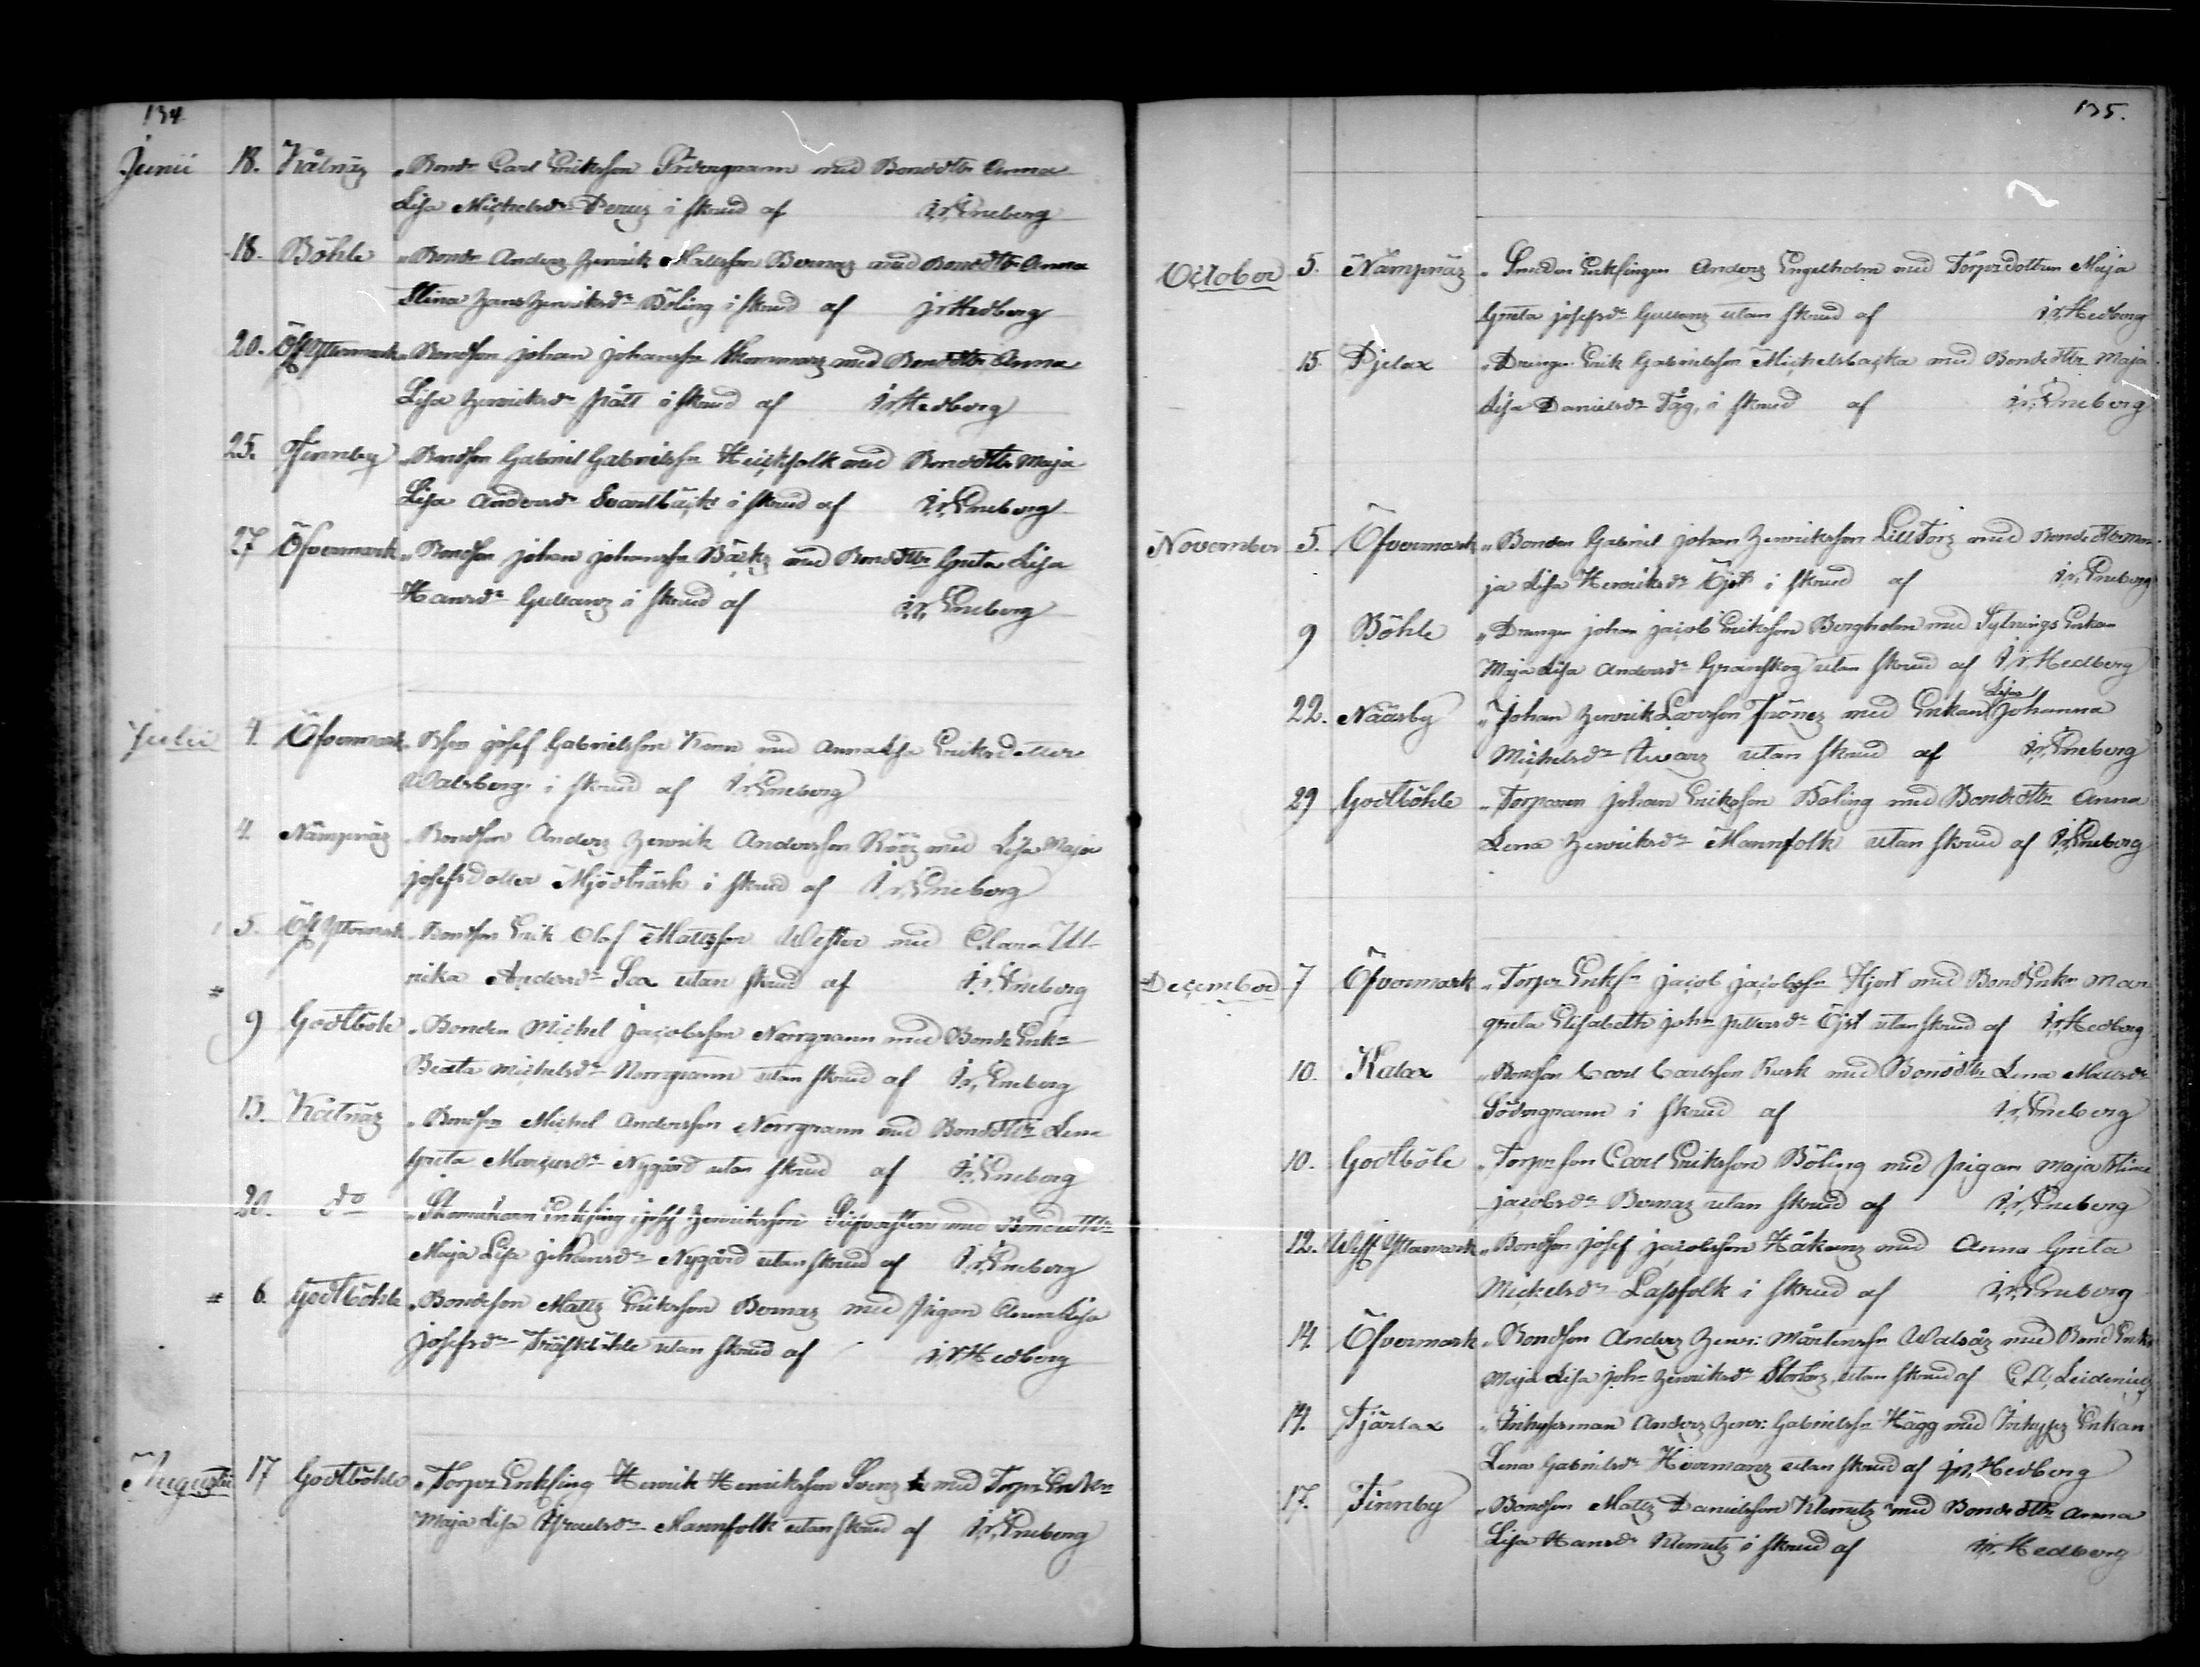 134
Junii 18. Kålnäz „Bond Carl Eriksson Södergrann med Bondedttr Anna
Lisa Michelsdr Peruz i skrud af Eneberg
18. Böhle „Bonde Anderz Henrik Mattsson Bernaz med Bondedttr Anna
Stina Hans Henriksdr Böling i skrud af Hedberg
20. Öf Yttermark „Bondson Johan Johansson med Bondedttr Anna
Lisa Henriksdr Pått i skrud af Hedberg
25. Finnby „Bondson Gabriel Gabrielss Heickfolk med Bondedttr Maja
Lisa Andersdr Svartbäck i skrud af Eneberg
27 Öfvermark „Bondson Johan Johansson Bäckz med Bondedttr Greta Lisa
Hansdr Gullanz i skrud af Eneberg
Julii 4. Öfvermark „Bson Josef Gabrielsson Korn med Anna Lisa Eriksdotter
Walsberg i skrud af Eneberg
4. Nämpnäz „Bondson Anderz Henrik Andersson Rööz med Lisa Maja
Josefsdotter Mjödträsk i skrud af Eneberg
5. Öf Yttermark „Bondson Erik Olof Mattsson Wester med Clara Ul-
rika Andersdr utan skrud af Eneberg
9 Godtböle „Bonden Michel Jacobsson Norrgrann med Bonde Enk
Beata Michelsdr Norrgrann utan skrud af Eneberg
13. Kålnäz „Bondson Michel Andersson Norrgrann med Bondedttr Lena
Greta Marcusdr Nygård utan skrud af Eneberg
20. do „Skomakaren Enkling Josef Henriksson med Bondedttr
Maja Lisa Johansdr Nygård utan skrud af Eneberg
# 6. Godtböhle „Bondeson Mattz Eriksson Bernaz med Pigan Anna Lisa
Josefsdr Träskböhle utan skrud af Hedberg
Augustii 17 Godtböhle „Torpr Enkling Henrik Henriksson Svenz med Torpr Enkn
Maja Lisa Israelsdr Mannfolk utan skrud af Eneberg
135.
October 5. Nämpnäz „Smeden Enklingen Anderz Engelholm med Torpr dottren Maja
Greta Josefsdr Gullanz utan skrud af Hedberg
15. Pjelax „Drengn Erik Gabrielsson Michelsbacka med Bondedttr Maja
Lisa Danielsdr Tåg, i skrud af Eneberg
November 5. Öfvermark „Bonden Gabriel Johan Henriksson LillTorz med Bondedttr Ma-
ja Lisa Henriksdr Öjst i skrud af Eneberg
9 Böhle „Drengen Johan Jacob Eriksson Bergholm med Sytnings Enkan
Maja Lisa Andersdr Granskog utan skrud af Hedberg
22. Nääsby „Johan Henrik Larsson Frönez med Enkan Lisa Johanna
Michelsdr utan skrud af Eneberg
29 Godtböhle „Torparen Johan Eriksson Böling med Bondedttr Anna
Lena Henriksdr Mannfolk utan skrud af Eneberg
December 7 Öfvermark „Torpr Enkl Jacob Jacobss Hjort med BondEnkn Mar-
greta Elisabeth John Pettersdr Öjst utan skrud af Hedberg
10. Kalax „Bondson Carl Carlsson Rusk med Bondedttr Lena Mattsdr
Södergrann i skrud af Eneberg
10. Godtböle „Torpr son Carl Eriksson Böling med Pigan Maja Stina
Jacobsdr Bernaz utan skrud af Eneberg
12. Yttermark „Bondson Josef Jacobsson Håkanz med Anna Greta
Mickelsdr Lassfolk i skrud af Eneberg
14. Öfvermark „Bondson Anderz Henr: Mårtenss Walsåz med BondEnkn
Maja Lisa John Henriksdr Stortorz, utan skrud af Leidenius
14. Tjärlax „Inhysesman Anderz Henr: Gabrielss Hägg med Inhyses Enkan
Lena Gabrielsdr utan skrud af Hedberg
17. Finnby „Bondson Mattz Danielsson Klemetz med Bondedttr Anna
Lisa Hansdr Klemetz i skrud af Hedberg